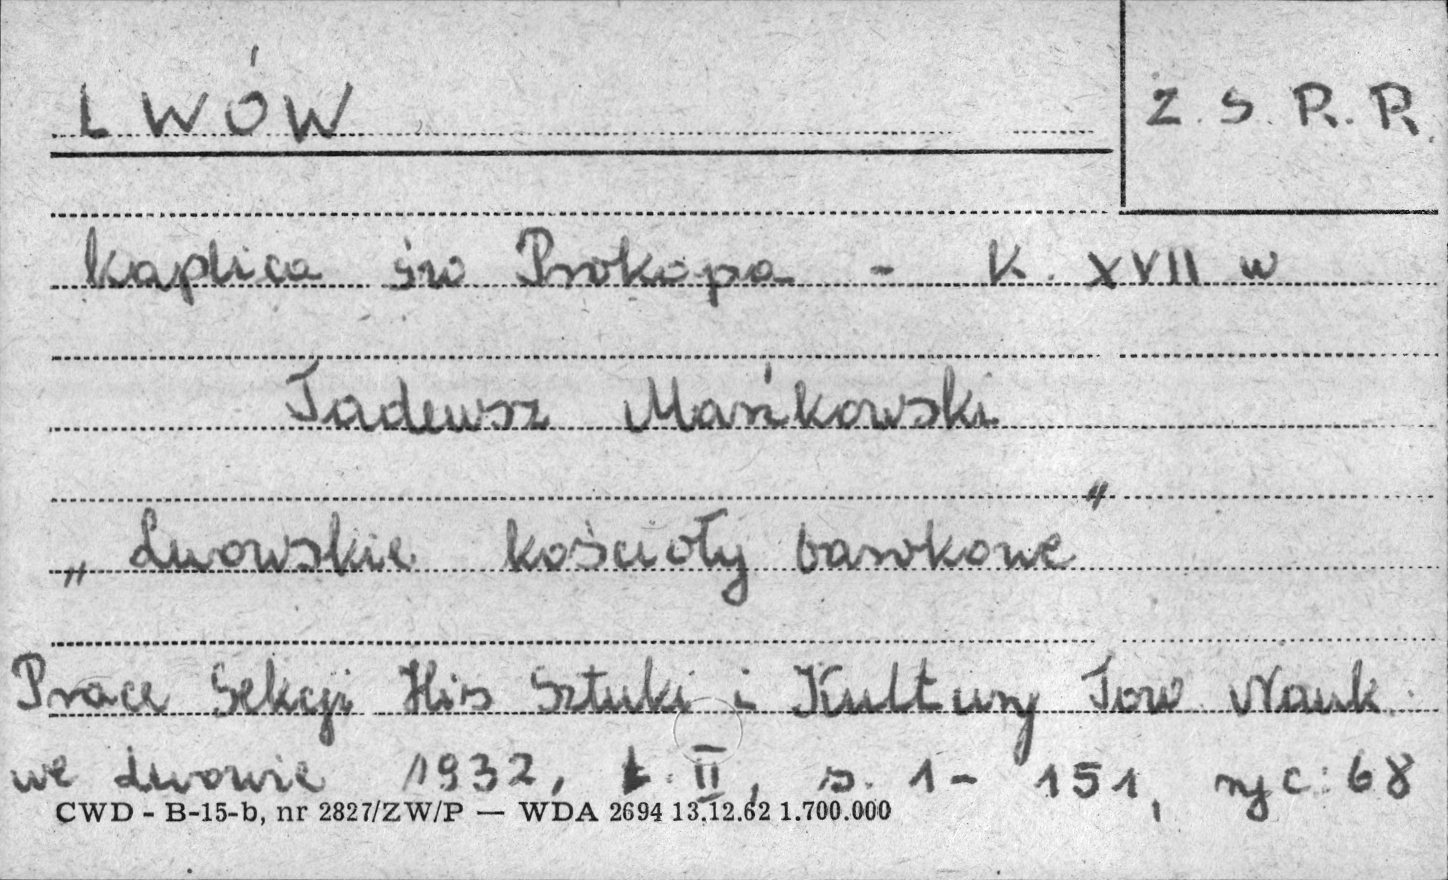 LWÓW
Z.S.R.R.
Kaplica św Prokopa - K. XVII w
Tadeusz Mańkowski
„Lwowskie kościoły barokowe"
Prace Sekcji His Sztuki i Kultury Tow Nauk.
we Lwowie 1932, t. II, s. 1-151, ryc: 68
CWD - B-15-b, nr 2827/ZW/P — WDA 2694 13.12.62 1.700.000